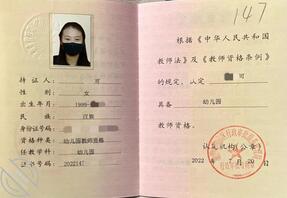 持证人 可
性别 女
出生年月 1999-
民族 汉族
身份证号码
资格种类 幼儿园教师资格
任教学科 幼儿园
证书号码 2022147
147
根据《中华人民共和国
教师法》及《教师资格条例》
的规定,认定 可
具备 幼儿园
教师资格。
认定机构(公章)
2022 年 7 月 20 日